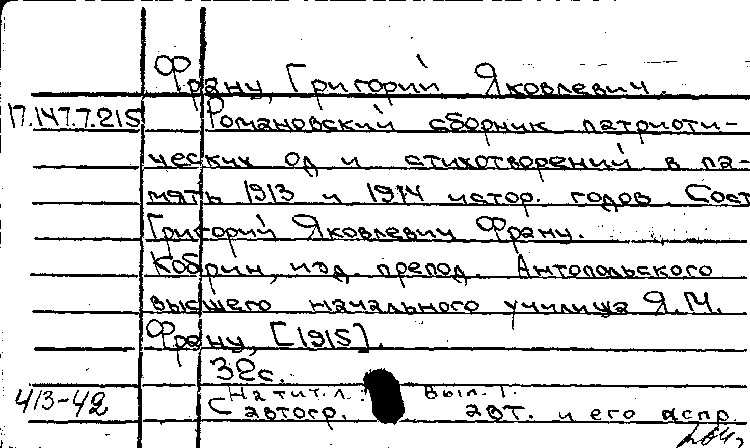 Франц, Григорий Яковлевич.
17.147.7.215 Романовский сборник патриоти-
ческих од и стихотворений в па-
мять 1913 и 1914 истор. годов. Сост
Григорий Яковлевич Франц.
Кобрин, изд. препод. Антопольского
высшего начального училища Я.М.
Франц, [1915].
32с.
На тит. л.: Вып. 1.
413-42 С автогр. авт. и его аспр.